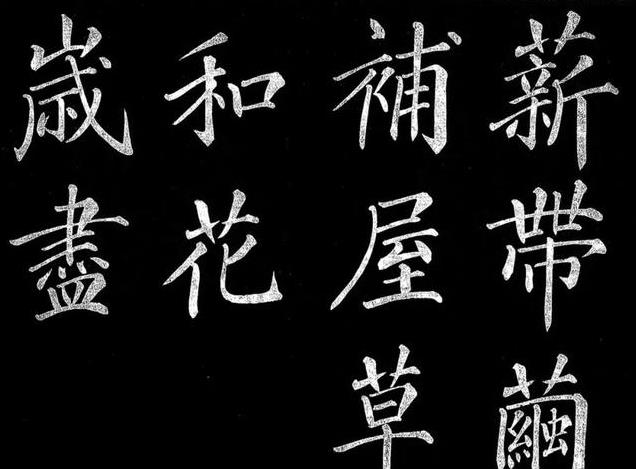 薪帶繭
補屋草
和花
歲盡